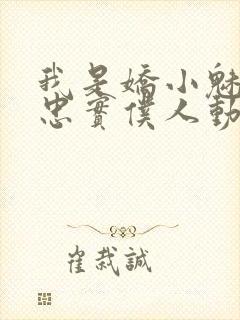 我是嬌小魅
忠實僕人動
崔栽誠